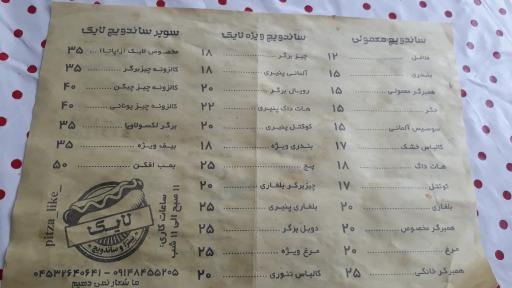 ساندویچ معمولی
فلافل ۱۲
بندری ۱۵
همبرگر معمولی ۱۵
جگر ۱۵
سوسیس آلمانی ۱۵
کالباس خشک ۱۷
هات داگ ۱۸
کوکتل ۱۷
بلغاری ۲۰
همبرگر مخصوص ۲۰
مرغ ۲۰
همبرگر خانگی ۲۵
ساندویچ ویژه لایک
چیز برگر ۱۸
آلمانی پنیری ۱۸
رویال برگر ۲۰
هات داگ پنیری ۲۲
کوکتل پنیری ۲۰
بندری ویژه ۱۸
پیچ ۲۵
چیزبرگر بلغاری ۲۰
بلغاری پنیری ۲۵
دوبل برگر ۲۵
مرغ ویژه ۲۵
کالباس تنوری ۲۰
سوپر ساندویچ لایک
مخصوص لایک (اراپاتا) ۳۵
کالزونه چیزبرگر ۳۵
کالزونه چیز چیکن ۴۰
کالزونه چیز یونانی ۴۰
برگر لکسولاویا ۳۵
بیف ویژه ۳۵
بمب افکن ۵۰
pitza_like_
لایک
پیتزا و ساندویچ
ساعات کاری:
۱۱ صبح الی ۱۱ شب
۰۴۵۳۲۶۴۰۶۴۱ - ۰۹۱۴۸۴۵۵۲۰۵
ما شعار نمی دهیم